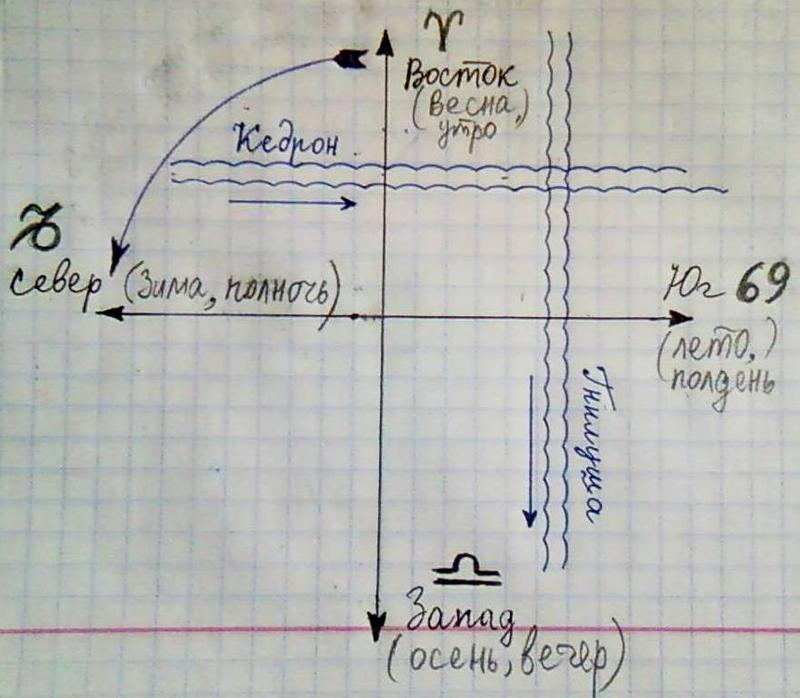 ♈
Восток
(весна,)
утро
Кедрон
♑
север (зима, полночь)
Юг 69
(лето,)
полдень
Гнилуша
♎
Запад
(осень, вечер)